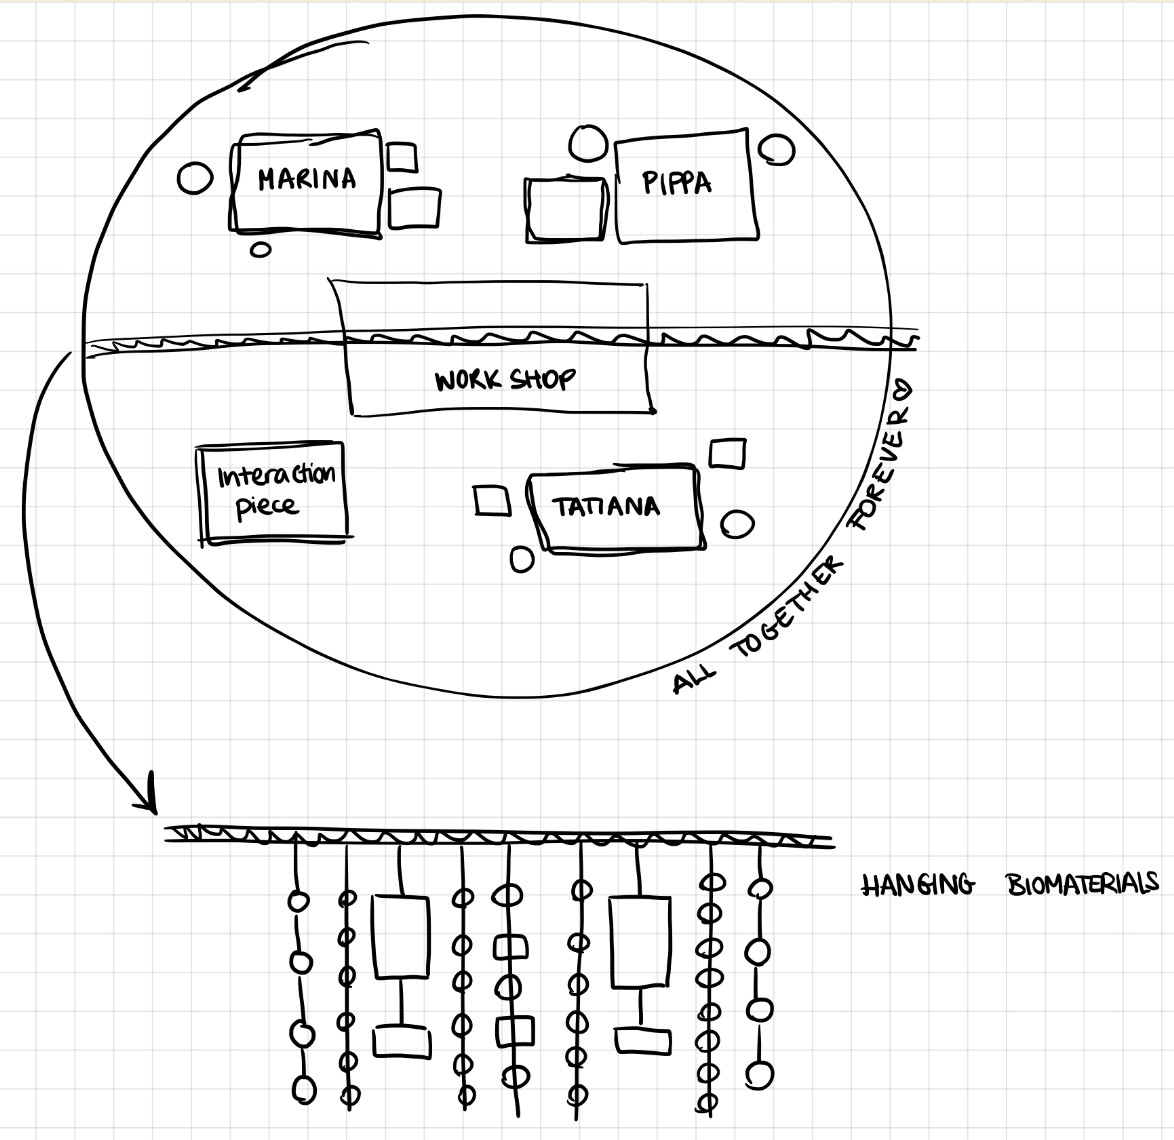 MARINA
PIPPA
WORK SHOP
Interaction
piece
TATIANA
ALL TOGETHER FOREVER
HANGING BIOMATERIALS